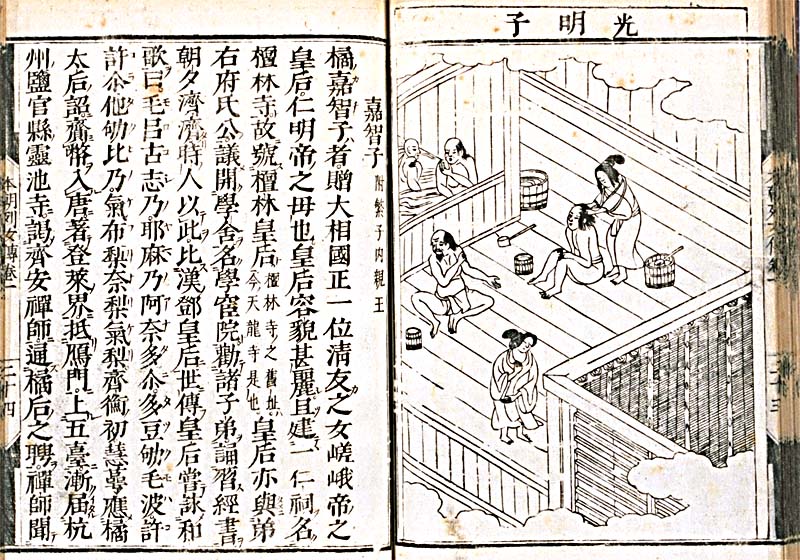 光明子
嘉智子 附繁子内親王
橘嘉智子者贈大相國正一位清友之女嵯峨帝之
皇后仁明帝之母也皇后容貌甚麗且建一仁祠名
檀林寺故號檀林皇后檀林寺之舊址今天龍寺是也皇后亦與弟
右府氏公議開學舍名學官院勸諸子弟誦習經書
朝夕濟濟時人以此比漢鄧皇后世傳皇后嘗詠和
歌曰毛呂古志乃耶麻乃阿奈多尒多豆劬毛波許
許尒他劬比乃氣布梨奈梨氣梨齊衡初慧萼應橘
太后詔齎幣入唐著登萊界抵鴈門上五臺漸届杭
州鹽官縣靈池寺謁齊安禪師通橘后之聘禪師聞
本朝列女傳卷一
二十四